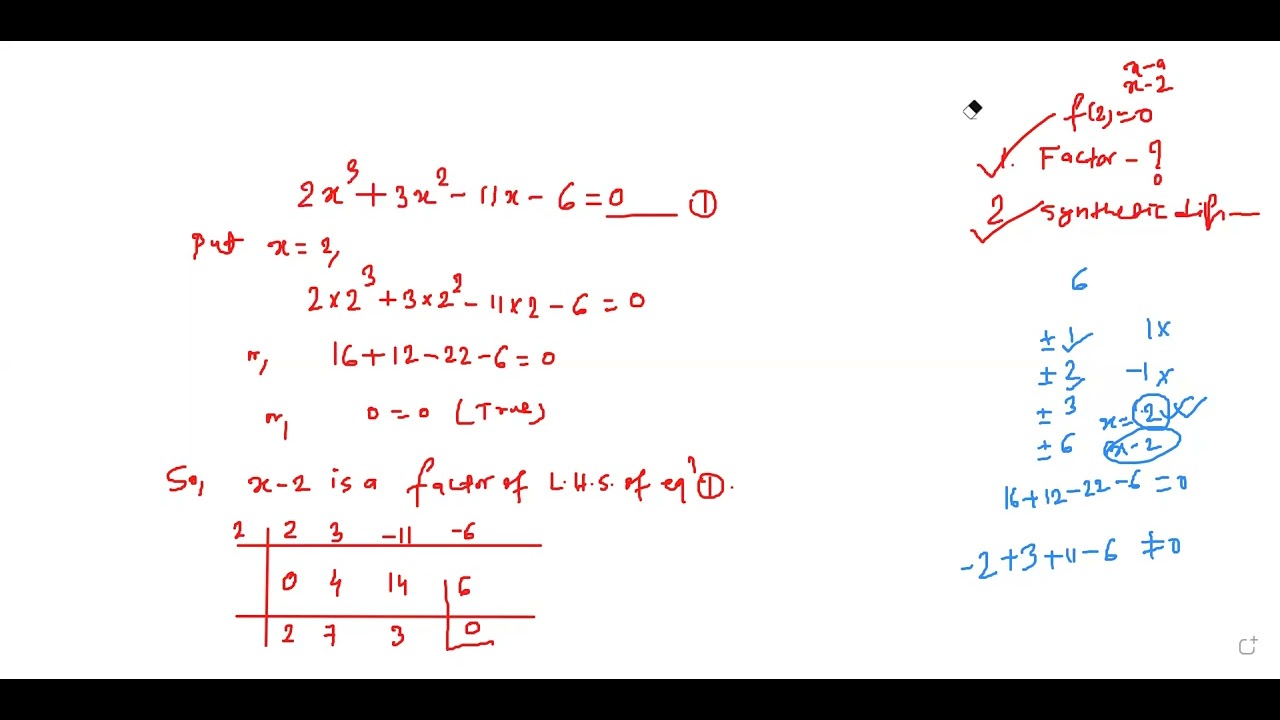 2x³ + 3x² - 11x - 6 = 0 ①
Put x = 2,
2×2³ + 3×2² - 11×2 - 6 = 0
or, 16 + 12 - 22 - 6 = 0
or, 0 = 0 (True)
So, x-2 is a factor of L.H.S. of eqⁿ ①.
2 | 2 3 -11 -6
0 4 14 6
2 7 3 0
x-a
x-2
f(2)=0
1. Factor - ?
2 Synthetic
6
± 1 1 ×
± 2 -1 ×
± 3 x = 2 ✓
± 6 x-2
16+12-22-6 = 0
-2+3+11-6 ≠ 0